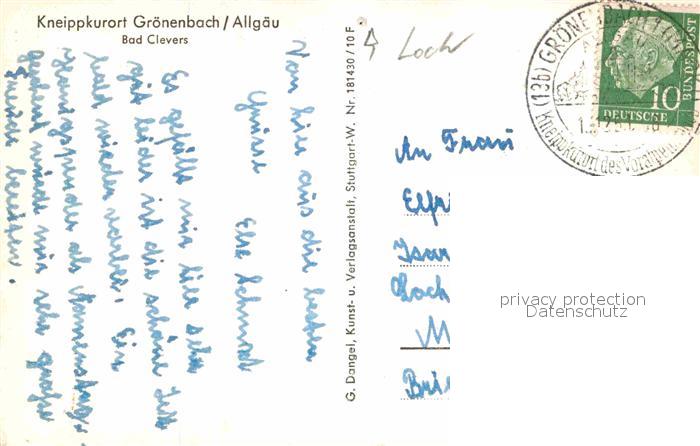 Kneippkurort Grönenbach / Allgäu
Bad Clevers
Von hier aus die besten
Grüsse
Else Schmid
Es gefällt mir hier sehr
gut leider ist die schöne Zeit
bald wieder vorbei. Ein
als
würde mir sehr große
Freude bereiten.
G. Dangel, Kunst- u. Verlagsanstalt, Stuttgart-W. Nr. 181430 / 10 F
Loch
An Frau
Elfr
Isar
Loch
M
Bri
(13b) GRÖNENBACH
Kneippkurort des Voralpen
10
DEUTSCHE
BUNDESPOST
privacy protection
Datenschutz